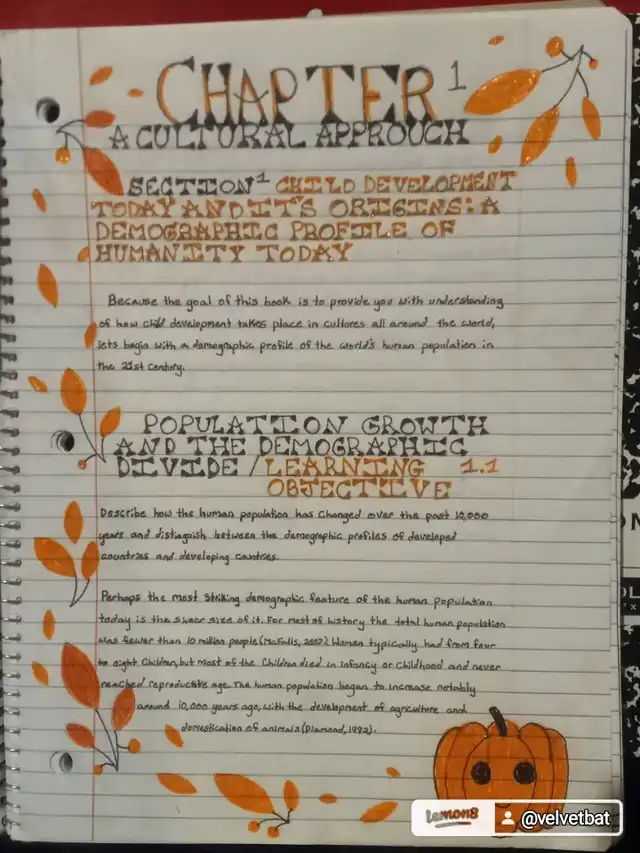 CHAPTER 1
A CULTURAL APPROUCH
SECTION 1 CHILD DEVELOPMENT
TODAY AND IT'S ORIGINS: A
DEMOGRAPHIC PROFILE OF
HUMANITY TODAY
Because the goal of this book is to provide you with understanding
of how child development takes place in cultures all around the world,
lets begin with a demographic profile of the world's human population in
the 21st century.
POPULATION GROWTH
AND THE DEMOGRAPHIC
DIVIDE / LEARNING 1.1
OBJECTIVE
Describe how the human population has changed over the past 10,000
years and distinguish between the demographic profiles of developed
countries and developing countries.
Perhaps the most striking demographic feature of the human population
today is the sheer size of it. For most of history the total human population
was fewer than 10 million people (McFalls, 2007). Women typically had from four
to eight children, but most of the children died in infancy or childhood and never
reached reproductive age. The human population began to increase notably
around 10,000 years ago, with the development of agriculture and
domestication of animals (Diamond, 1992).
lemon8 @velvetbat